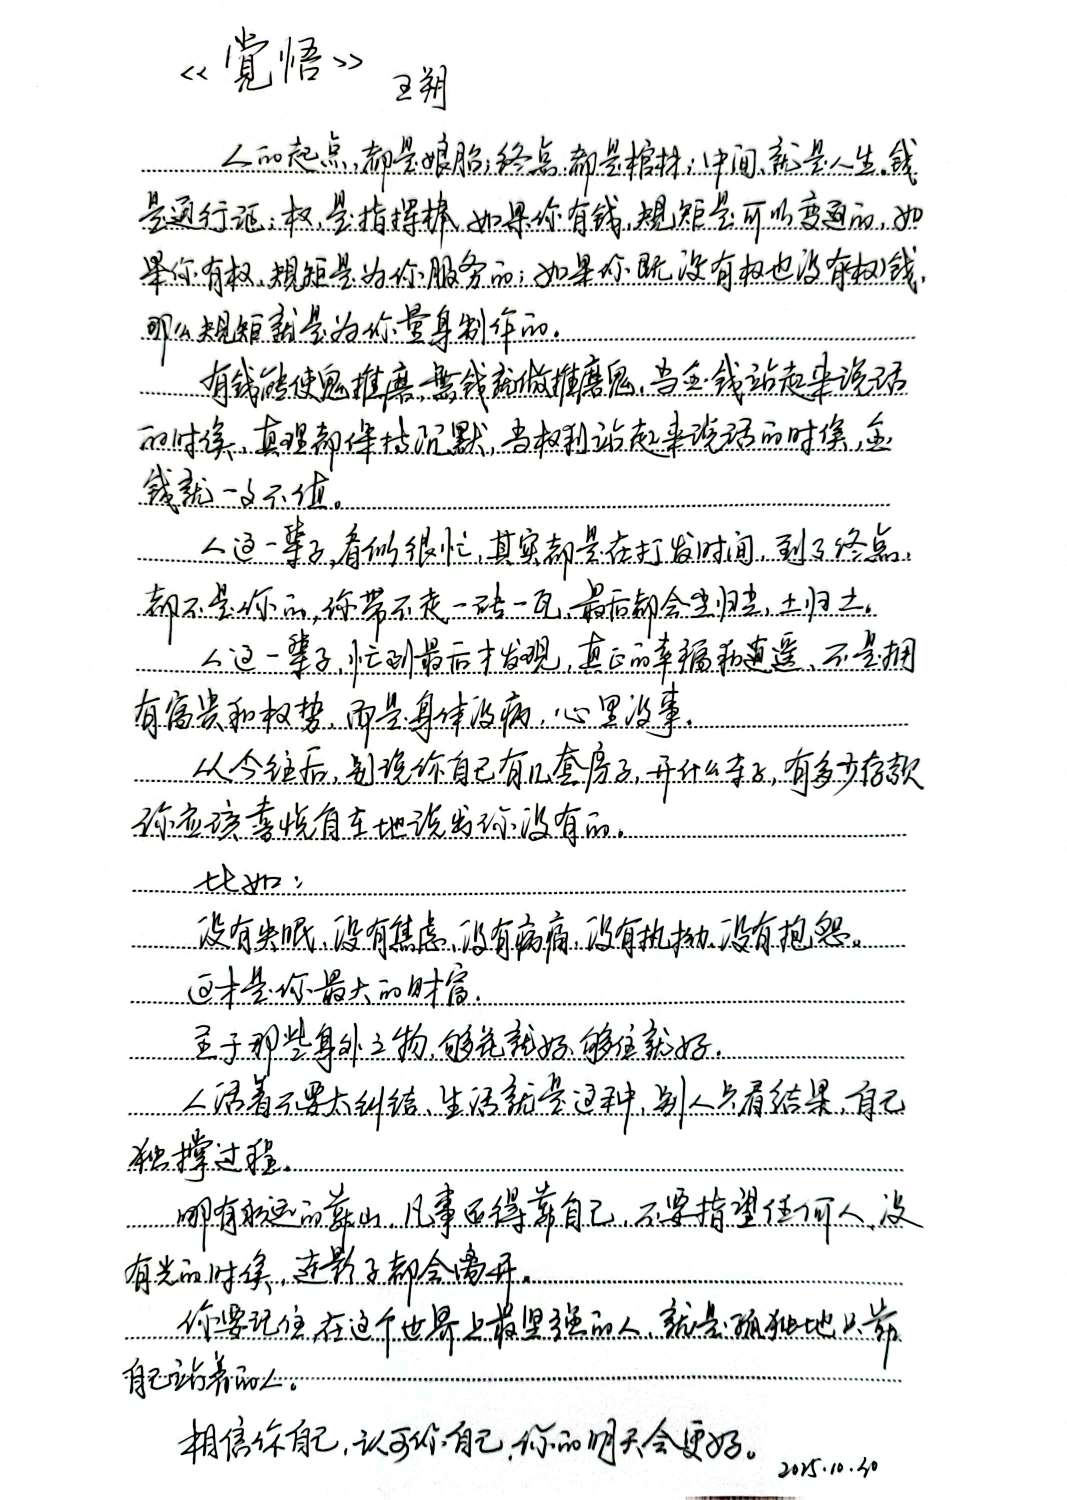 《覺悟》
王朔
人的起点,都是娘胎;终点,都是棺材;中间,就是人生。钱
是通行证;权,是指挥棒,如果你有钱,规矩是可以变通的,如
果你有权,规矩是为你服务的;如果你既没有权也没有权钱,
那么规矩就是为你量身制作的。
有钱能使鬼推磨,無钱就做推磨鬼,当金钱站起来说话
的时候,真理都保持沉默,当权利站起来说话的时候,金
钱就一文不值。
人这一辈子,看似很忙,其实都是在打发时间,到了终点,
都不是你的,你带不走一砖一瓦,最后都会尘归尘,土归土。
人这一辈子,忙到最后才发现,真正的幸福和逍遥、不是拥
有富贵和权势,而是身体没病,心里没事。
从今往后,别说你自己有几套房子,开什么车子,有多少存款
你应该喜悦自在地说出你没有的。
比如:
没有失眠、没有焦虑、没有病痛、没有执拗、没有抱怨。
这才是你最大的财富。
至于那些身外之物,够花就好、够住就好。
人活着不要太纠结、生活就是这种,别人只看结果,自己
独撑过程。
哪有永远的靠山,凡事还得靠自己,不要指望任何人,没
有光的时候,连影子都会离开。
你要记住,在这个世界上最坚强的人,就是孤独地只靠
自己站着的人。
相信你自己,认可你自己,你的明天会更好。
2025.10.30